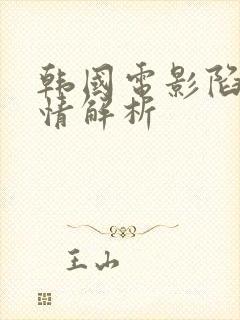 韩國电影陷
情解析
王山